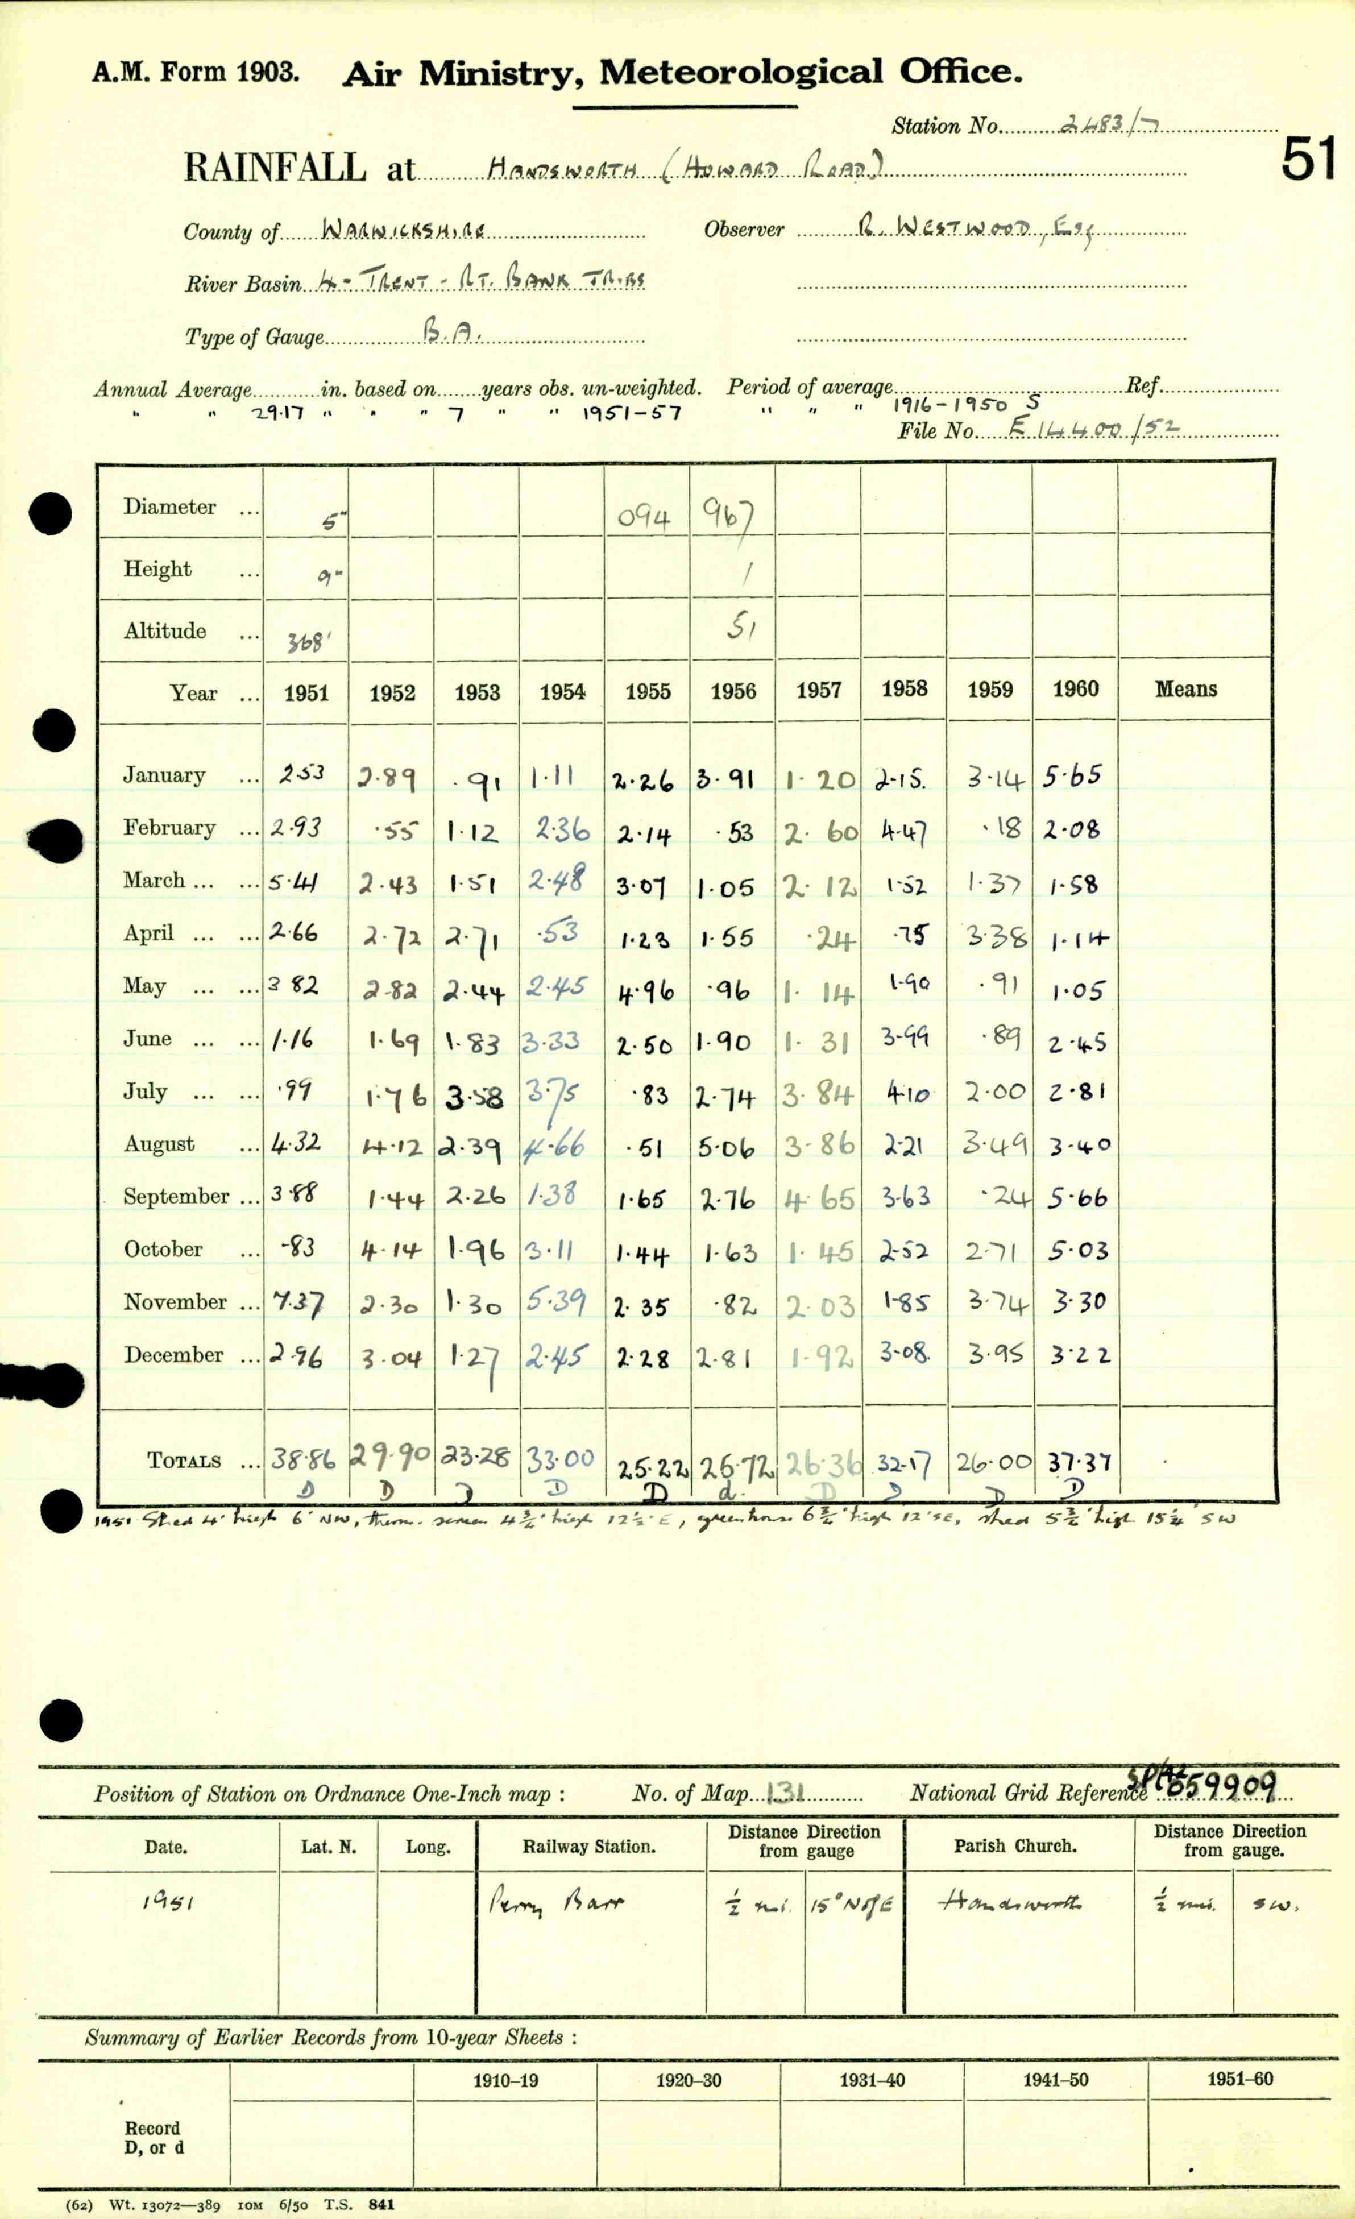 A.M. Form 1903. Air Ministry, Meteorological Office.
Station No. 2483/7
51
RAINFALL at HANDSWORTH (HOWARD ROAD)
County of WARWICKSHIRE Observer R. WESTWOOD, Esq
River Basin 4 - TRENT - RT. BANK TRIBS
Type of Gauge B.A.
Annual Average in. based on years obs. un-weighted. Period of average Ref.
" " 29.17 " " " 7 " " 1951-57 " " " 1916-1950 S
File No. E 14400/52
Diameter ... 5" 094 967
Height ... 9" 1
Altitude ... 368' 51
Year ... 1951 1952 1953 1954 1955 1956 1957 1958 1959 1960 Means
January ... 2.53 2.89 .91 1.11 2.26 3.91 1.20 2.15 3.14 5.65
February ... 2.93 .55 1.12 2.36 2.14 .53 2.60 4.47 .18 2.08
March ... ... 5.41 2.43 1.51 2.48 3.07 1.05 2.12 1.52 1.37 1.58
April ... ... 2.66 2.72 2.71 .53 1.23 1.55 .24 .75 3.38 1.14
May ... ... 3 82 2.82 2.44 2.45 4.96 .96 1.14 1.90 .91 1.05
June ... ... 1.16 1.69 1.83 3.33 2.50 1.90 1.31 3.99 .89 2.45
July ... ... .99 1.76 3.58 3.75 .83 2.74 3.84 4.10 2.00 2.81
August ... 4.32 4.12 2.39 4.66 .51 5.06 3.86 2.21 3.49 3.40
September ... 3.88 1.44 2.26 1.38 1.65 2.76 4.65 3.63 .24 5.66
October ... .83 4.14 1.96 3.11 1.44 1.63 1.45 2.52 2.71 5.03
November ... 7.37 2.30 1.30 5.39 2.35 .82 2.03 1.85 3.74 3.30
December ... 2.96 3.04 1.27 2.45 2.28 2.81 1.92 3.08 3.95 3.22
TOTALS ... 38.86 29.90 23.28 33.00 25.22 25.72 26.36 32.17 26.00 37.37
D D D D D d. D D D D
1951 Shed 4' high 6' NW, therm. screen 4¾' high 12½' E, greenhouse 6¾' high 12' SE, shed 5¾' high 15¼' SW
Position of Station on Ordnance One-Inch map : No. of Map 131 National Grid Reference 059909
Date. Lat. N. Long. Railway Station. Distance from Direction gauge Parish Church. Distance from Direction gauge.
1951 Perry Barr ½ mi. 15° N of E Handsworth ½ mi. SW.
Summary of Earlier Records from 10-year Sheets :
1910–19 1920–30 1931–40 1941–50 1951–60
Record
D, or d
(62) Wt. 13072—389 10M 6/50 T.S. 841